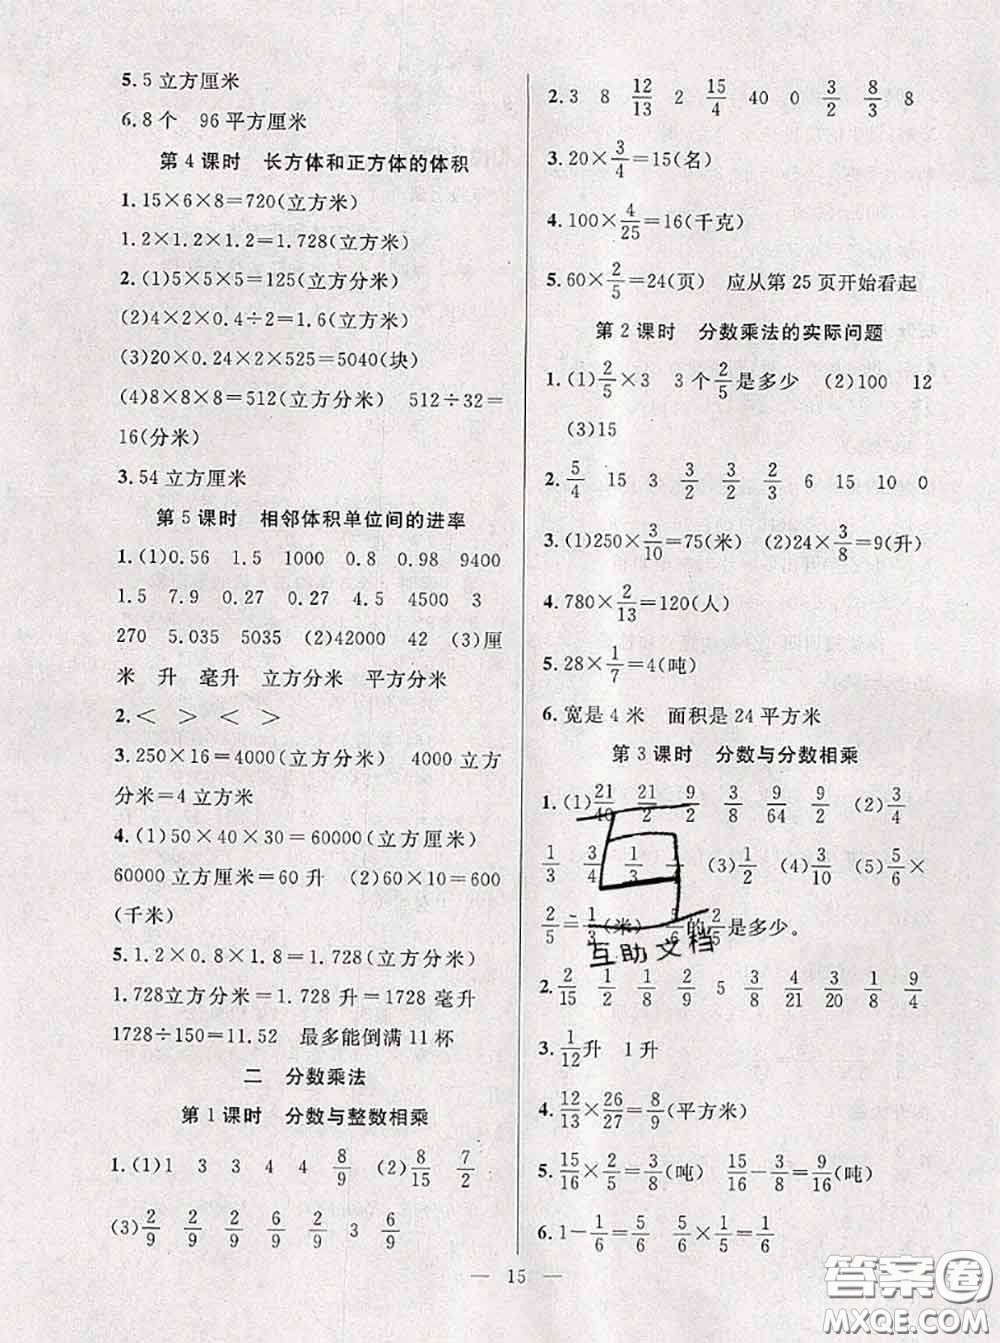 5.5立方厘米
6.8个 96平方厘米
第4课时 长方体和正方体的体积
1.15×6×8=720(立方米)
1.2×1.2×1.2=1.728(立方米)
2.(1)5×5×5=125(立方分米)
(2)4×2×0.4÷2=1.6(立方米)
(3)20×0.24×2×525=5040(块)
(4)8×8×8=512(立方分米) 512÷32=
16(分米)
3.54立方厘米
第5课时 相邻体积单位间的进率
1.(1)0.56 1.5 1000 0.8 0.98 9400
1.5 7.9 0.27 0.27 4.5 4500 3
270 5.035 5035 (2)42000 42 (3)厘
米 升 毫升 立方分米 平方分米
2.< > < >
3.250×16=4000(立方分米) 4000立方
分米=4立方米
4.(1)50×40×30=60000(立方厘米)
60000立方厘米=60升 (2)60×10=600
(千米)
5.1.2×0.8×1.8=1.728(立方分米)
1.728立方分米=1.728升=1728毫升
1728÷150=11.52 最多能倒满11杯
二 分数乘法
第1课时 分数与整数相乘
1.(1)1 3 3 4 4 8/9 (2)8/15 7/2
(3)2/9 2/9 2/9 6/9 2/9 3 6/9
2.3 8 12/13 2 15/4 40 0 3/2 8/3 8
3.20×3/4=15(名)
4.100×4/25=16(千克)
5.60×2/5=24(页) 应从第25页开始看起
第2课时 分数乘法的实际问题
1.(1)2/5×3 3个2/5是多少 (2)100 12
(3)15
2.5/4 15 3 3/2 2/3 6 15 10 0
3.(1)250×3/10=75(米) (2)24×3/8=9(升)
4.780×2/13=120(人)
5.28×1/7=4(吨)
6.宽是4米 面积是24平方米
第3课时 分数与分数相乘
1.(1)21/40 21/2 9/2 3/8 9/64 9/2 (2)3/4
1/3 3/4 1/3 (3)1/2 (4)3/10 (5)5/6×
2/5=1/3(米) 5/6的2/5是多少。
2.2/15 1/2 1/8 2/9 5 3/8 4/21 3/20 1/8 9/4
3.1/12升 1升
4.12/13×26/27=8/9(平方米)
5.15/16×2/5=3/8(吨) 15/16-3/8=9/16(吨)
6.1-1/6=5/6 5/6×1/5=1/6
互助文档
15
答案圈
MXQE.COM